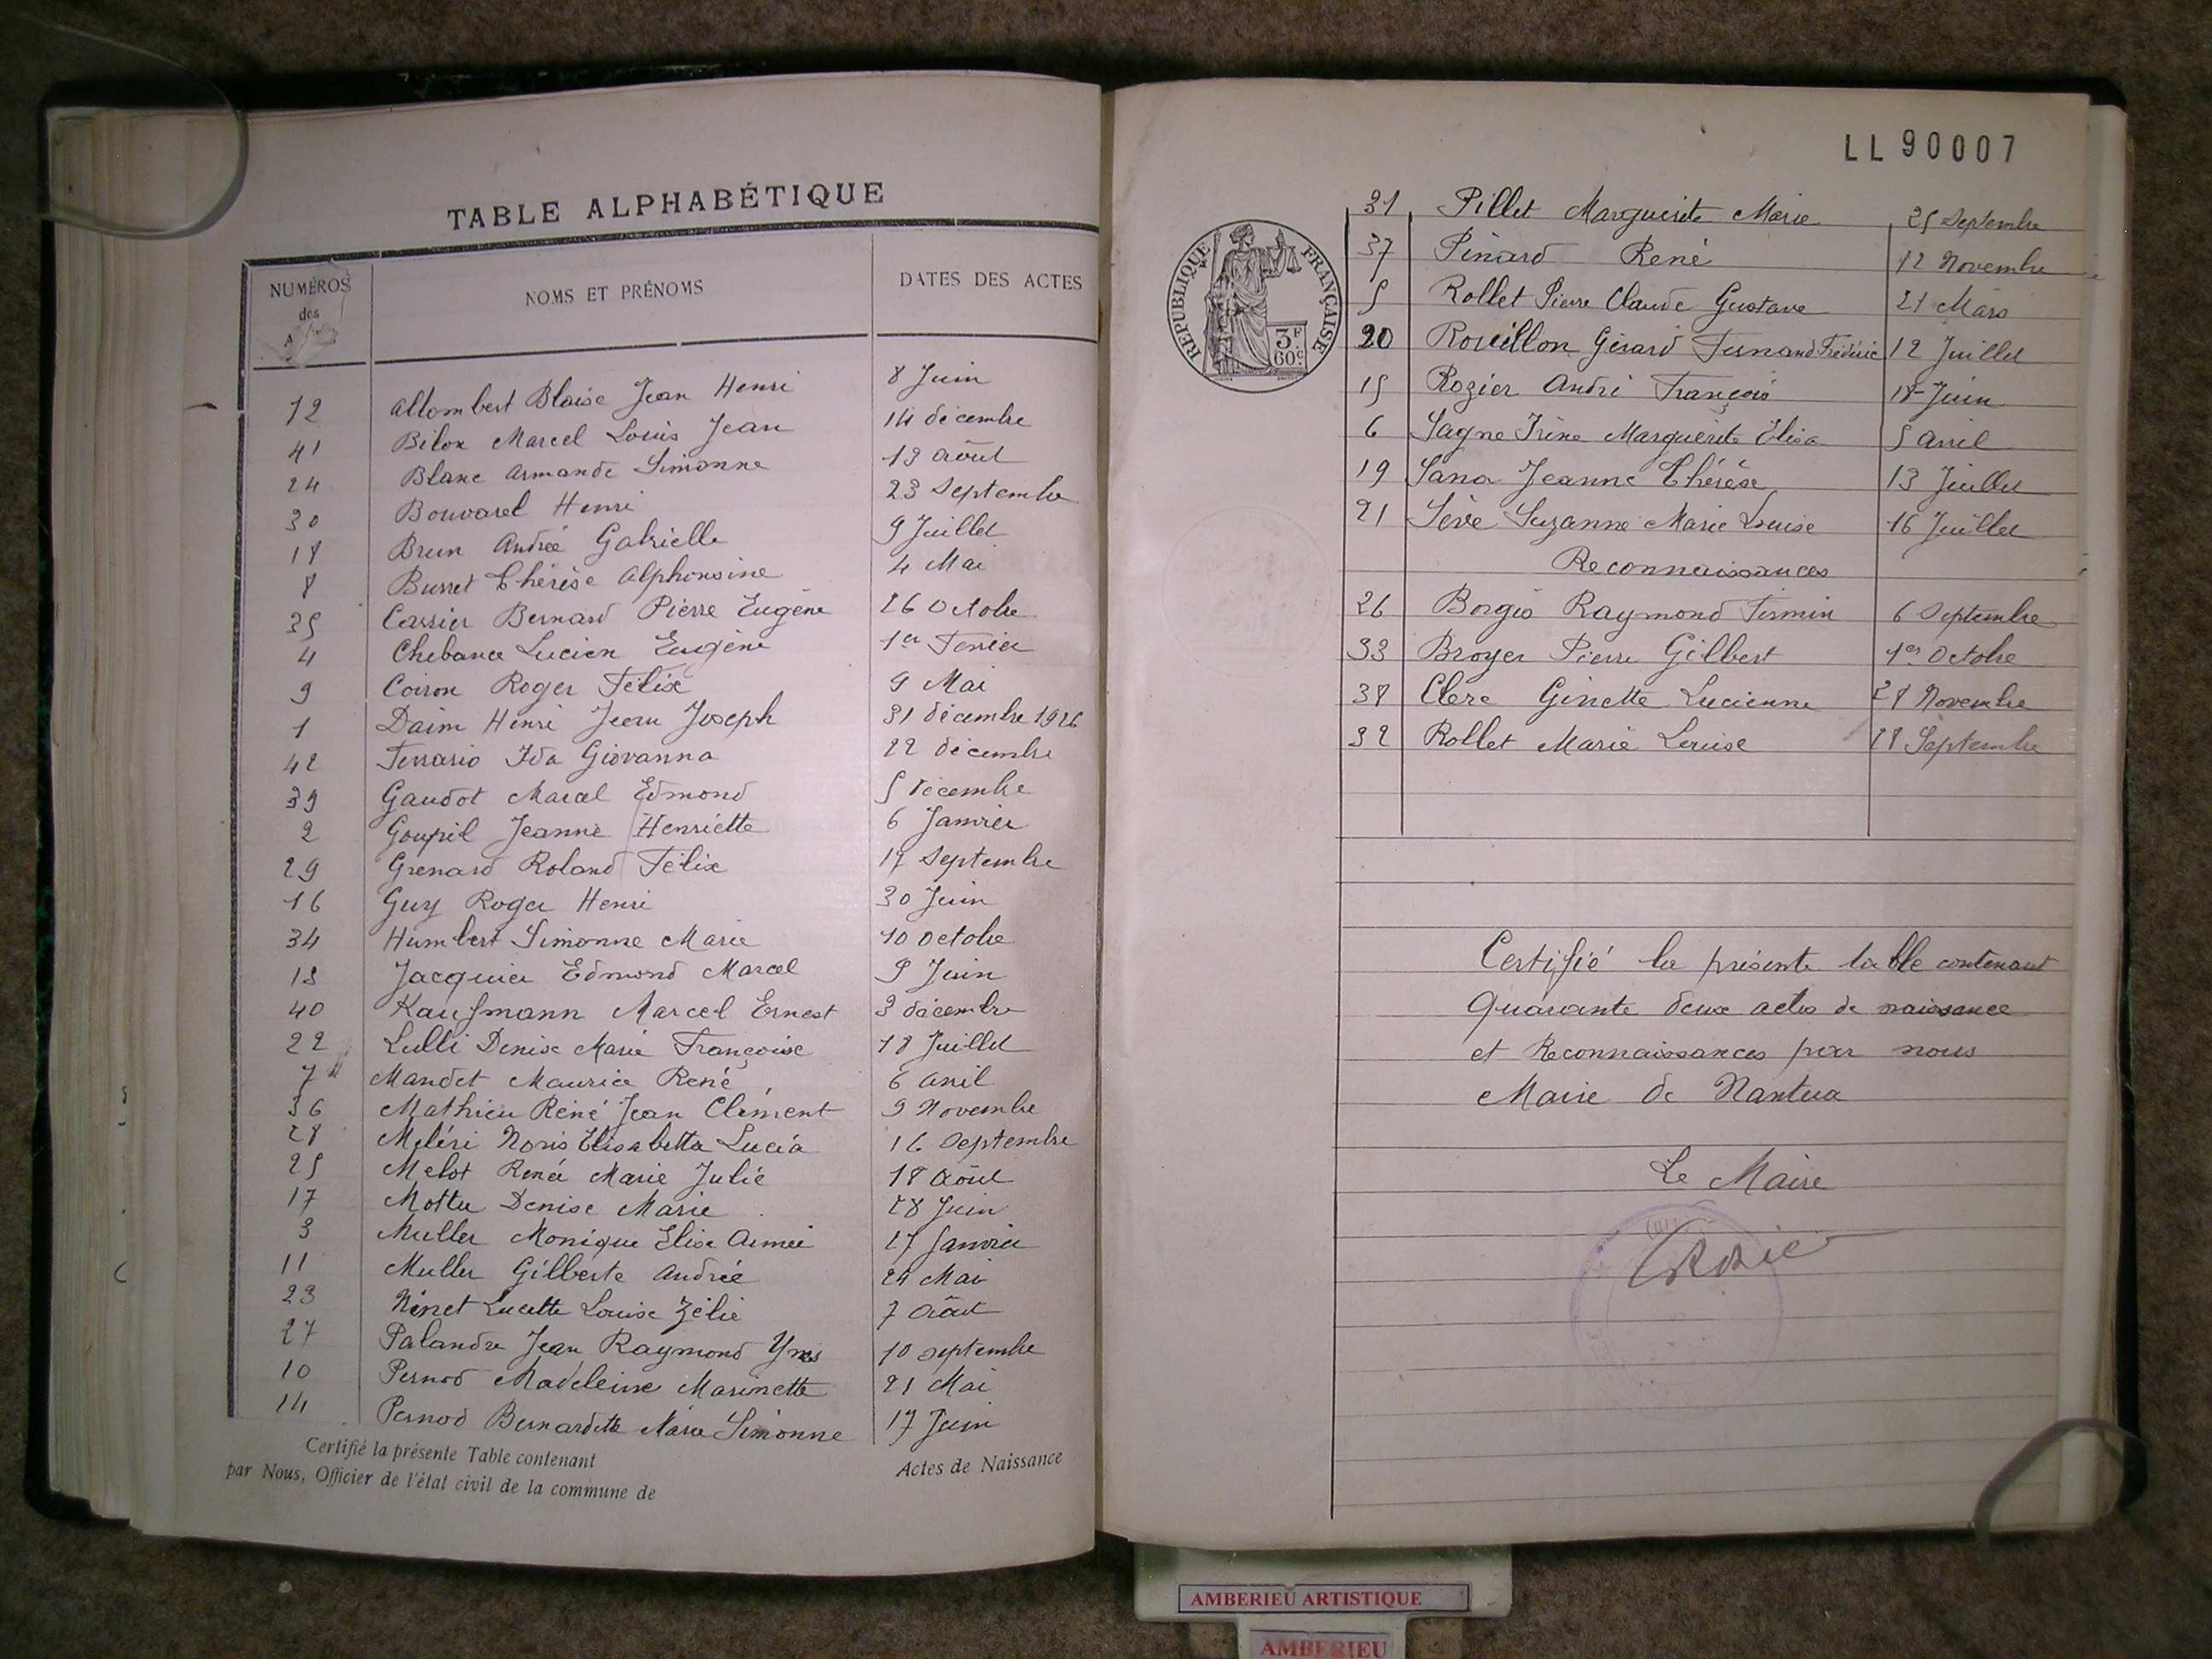 TABLE ALPHABÉTIQUE
NUMÉROS des
NOMS ET PRÉNOMS
DATES DES ACTES
12 Allombert Blaise Jean Henri 8 Juin
41 Bilon Marcel Louis Jean 14 décembre
24 Blanc Armande Simonne 13 Août
30 Bouvarel Henri 23 Septembre
18 Brun Andrée Gabrielle 9 Juillet
8 Burret Thérèse Alphonsine 4 Mai
35 Carrier Bernard Pierre Eugène 26 Octobre
4 Chebance Lucien Eugène 1er Février
9 Coiron Roger Félix 9 Mai
1 Daim Henri Jean Joseph 31 décembre 1926
42 Ferrario Ida Giovanna 22 décembre
39 Gaudot Marcel Edmond 5 décembre
2 Goupil Jeanne Henriette 6 Janvier
29 Grenard Roland Félix 17 Septembre
16 Guy Roger Henri 30 Juin
34 Humbert Simonne Marie 10 Octobre
13 Jacquier Edmond Marcel 9 Juin
40 Kaufmann Marcel Ernest 9 décembre
22 Lulli Denise Marie Françoise 18 Juillet
7 Mandet Maurice René 6 Avril
36 Mathieu René Jean Clément 9 Novembre
28 Meléri Noris Elisabetta Lucia 16 Septembre
25 Melot Renée Marie Julie 18 Août
17 Mottu Denise Marie 28 Juin
3 Muller Monique Elise Aimée 27 Janvier
11 Muller Gilberte Andrée 24 Mai
23 Ninet Lucette Louise Zélie 7 Août
27 Palandre Jean Raymond Yves 10 Septembre
10 Pernod Madeleine Marinette 21 Mai
14 Pernod Bernardette Marie Simonne 17 Juin
Certifié la présente Table contenant Actes de Naissance
par Nous, Officier de l'état civil de la commune de
LL 90007
RÉPUBLIQUE FRANÇAISE
3F 60c
31 Pillet Marguerite Marie 25 Septembre
37 Pinard René 12 Novembre
5 Rollet Pierre Claude Gustave 21 Mars
20 Rouillon Gérard Fernand Frédéric 12 Juillet
15 Rozier André François 18 Juin
6 Sagne Irène Marguerite Elisa 5 Avril
19 Sana Jeanne Thérèse 13 Juillet
21 Sève Suzanne Marie Louise 16 Juillet
Reconnaissances
26 Borgis Raymond Firmin 6 Septembre
33 Broyer Pierre Gilbert 1er Octobre
38 Clerc Ginette Lucienne 28 Novembre
32 Rollet Marie Louise 28 Septembre
Certifié la présente table contenant
quarante deux actes de naissance
et Reconnaissances par nous
Maire de Nantua
Le Maire
AMBERIEU ARTISTIQUE
AMBERIEU